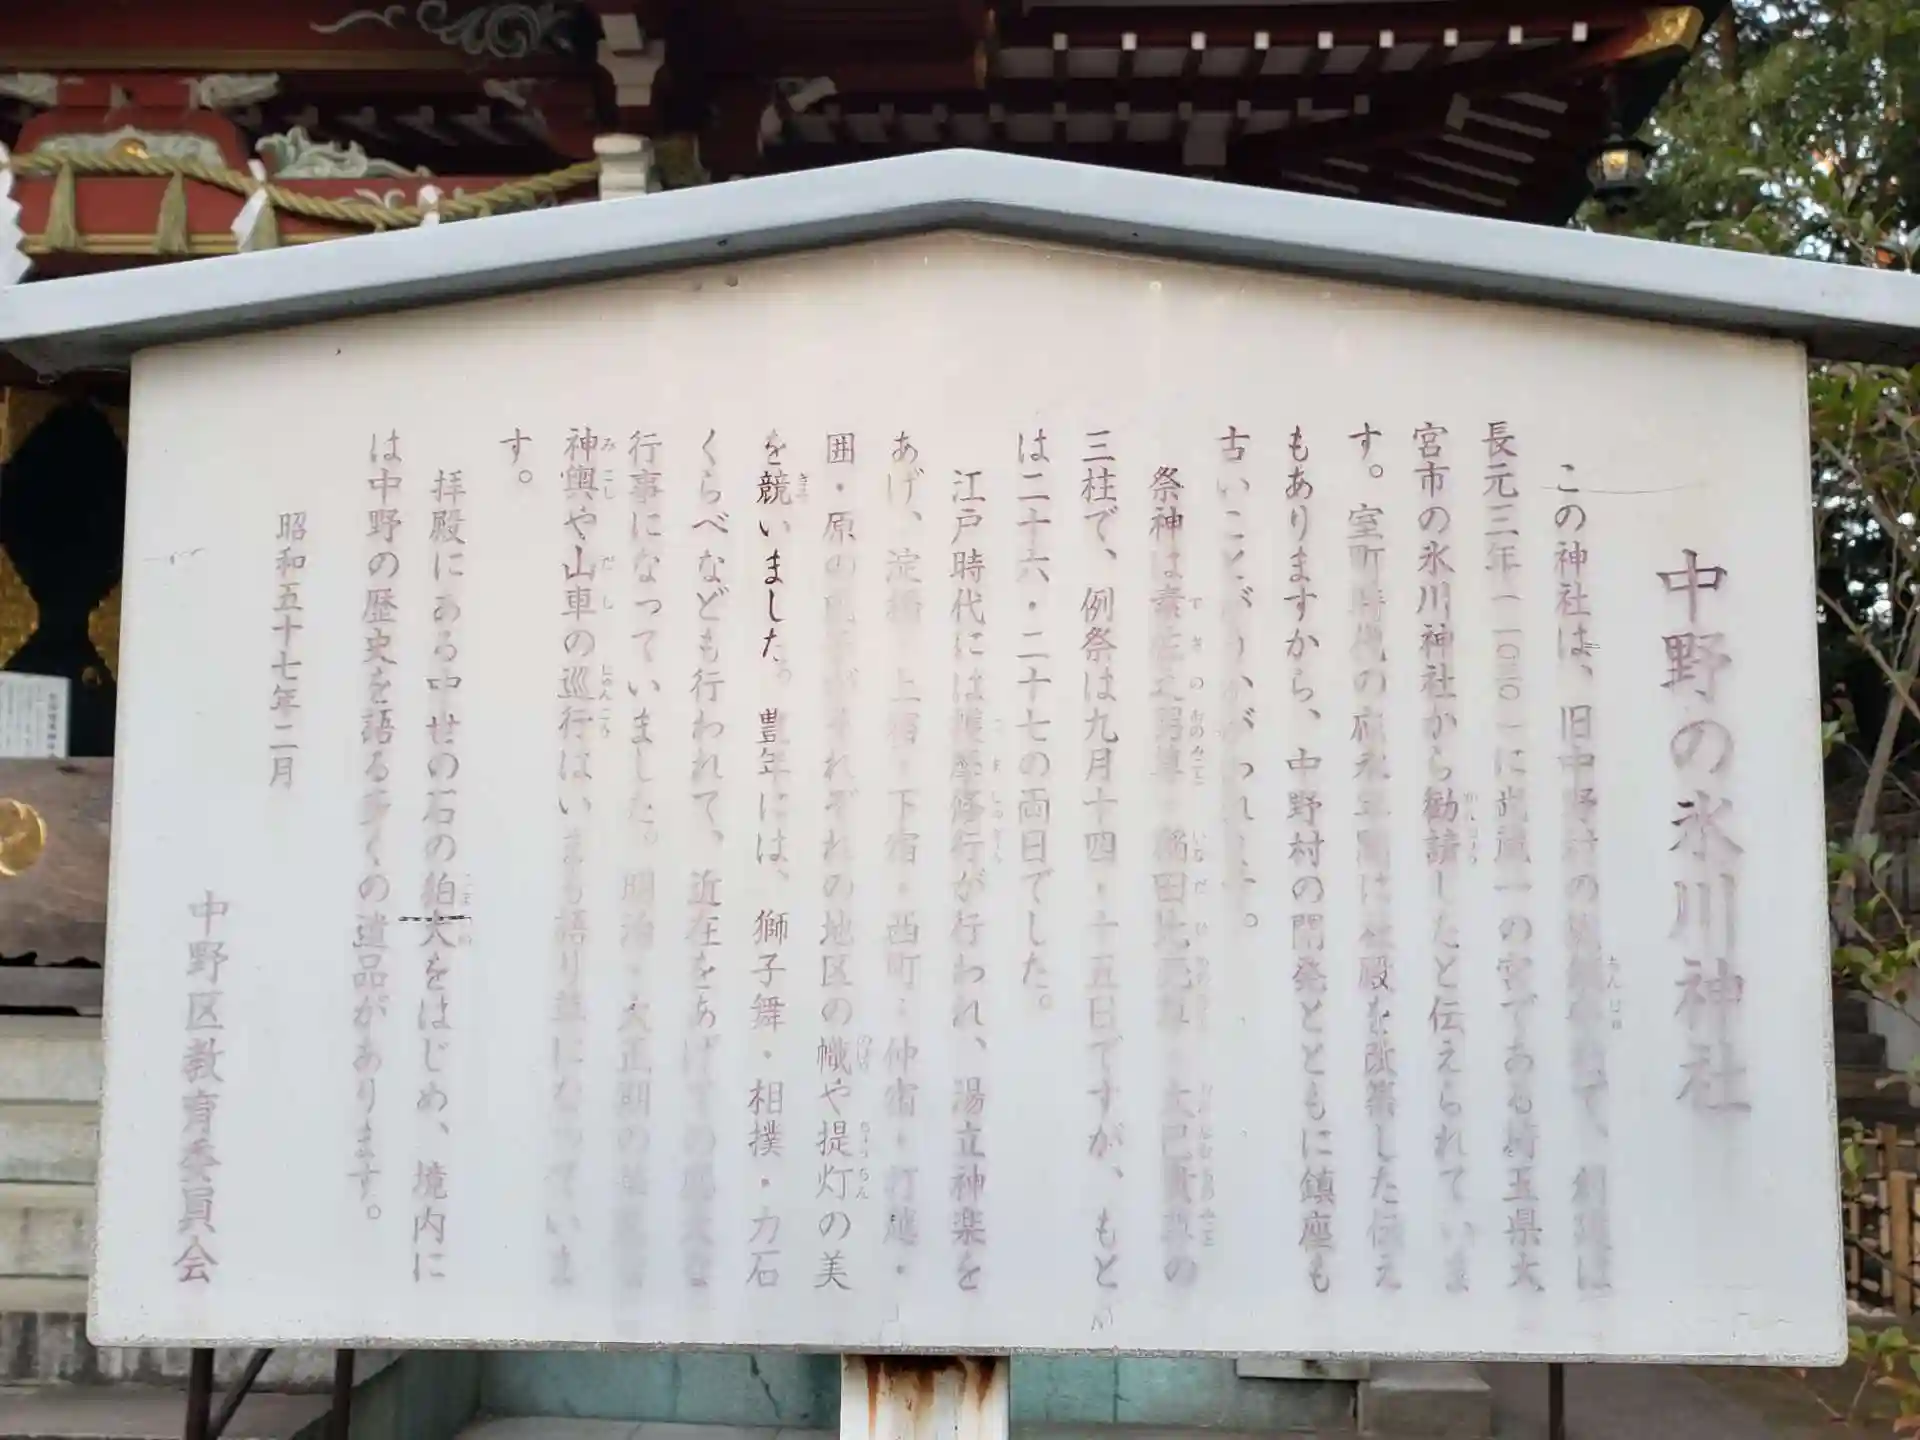 中野の氷川神社
この神社は、旧中野村の総鎮守で、創建は
長元三年(一〇三〇)に武蔵一の宮である埼玉県大
宮市の氷川神社から勧請したと伝えられていま
す。室町時代の応永年間に社殿を改築した伝え
もありますから、中野村の開発とともに鎮座も
古いことがうかがわれます。
祭神は素佐之男尊・稲田比売尊・大己貴尊の
三柱で、例祭は九月十四・十五日ですが、もと
は二十六・二十七の両日でした。
江戸時代には護摩修行が行われ、湯立神楽を
あげ、淀橋・上宿・下宿・西町・仲宿・打越・
囲・原の氏子がそれぞれの地区の幟や提灯の美
を競いました。豊年には、獅子舞・相撲・力石
くらべなども行われて、近在をあげての盛大な
行事になっていました。明治・大正期の
神輿や山車の巡行はいまも語り草になっていま
す。
拝殿にある中世の石の狛犬をはじめ、境内に
は中野の歴史を語る多くの遺品があります。
昭和五十七年二月
中野区教育委員会